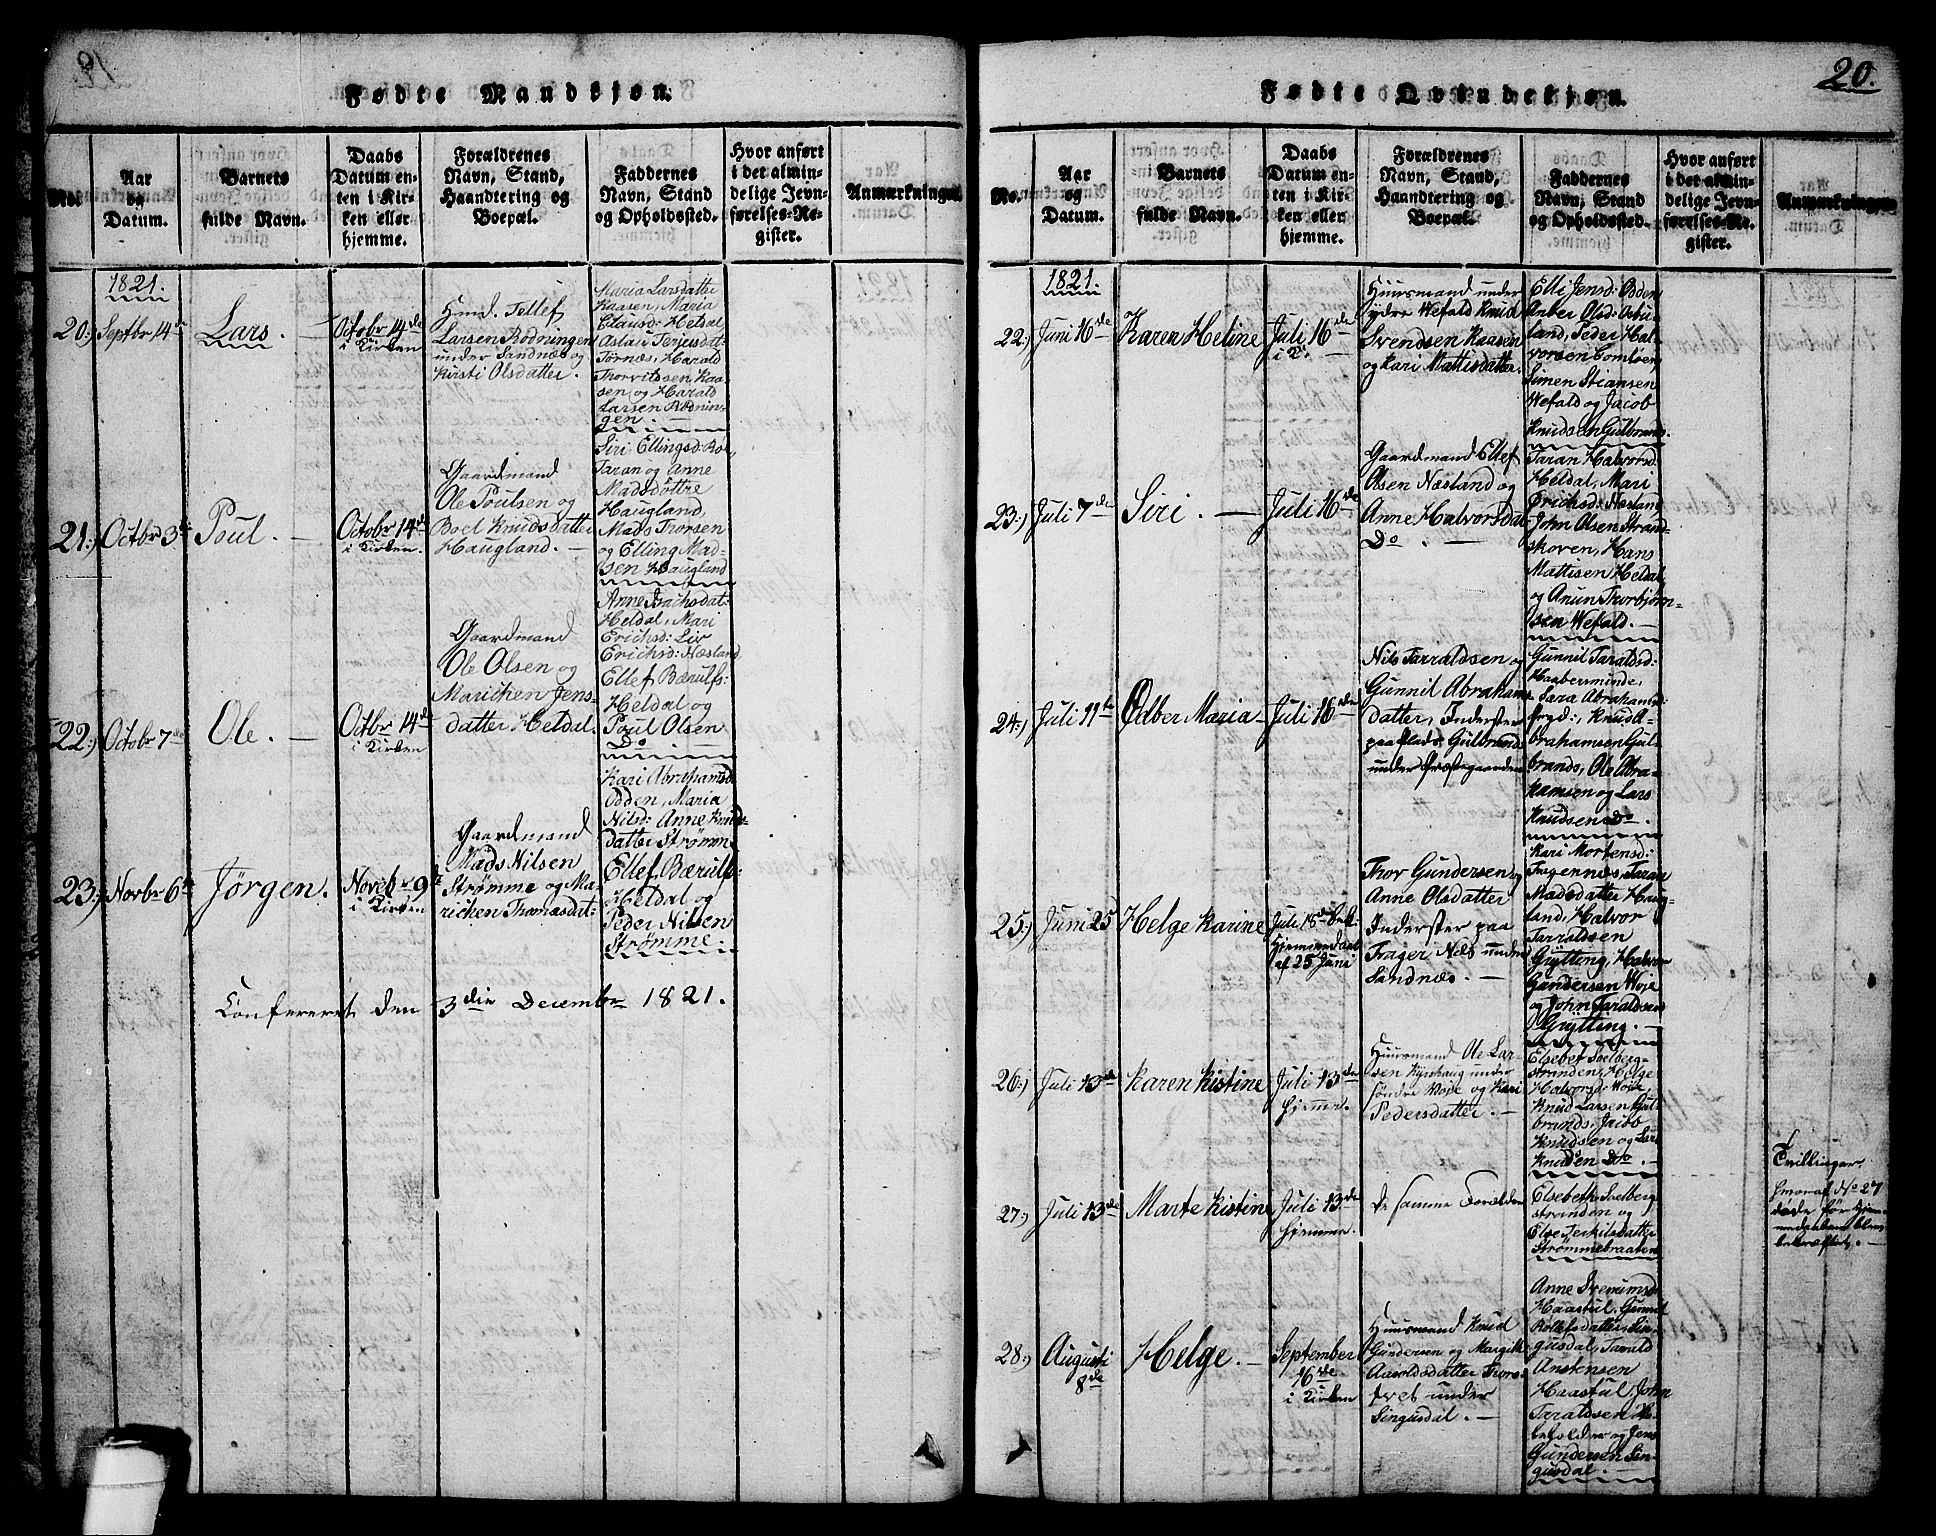 Fødte Mandkjøn.
No.
Aar
og
Datum.
Barnets
fulde Navn.
Daabs
Datum en-
ten i Kir-
ken eller
hjemme.
Forældrenes
Navn, Stand,
Haandtering og
Boepæl.
Faddernes
Navn, Stand
og Opholdssted.
Hvor anført
i det almin-
delige Jevn-
førelses-Re-
gister.
Anmærkninger.
1821.
20.)
Septbr 14de
Lars. —
Octobr 14de
i Kirken
Huusm. Tellef
Larsen Rödningen
under Sandnæs og
Kirsti Olsdatter.
Maria Larsdatter
Kaasen, Maria
Clausd: Hetdal
Aslau Terjusdat:
Tørnæs, Harald
Thorvitssen Kaa-
sen og Harald
Larsen Rødnin-
gen. —
21.)
Octbr 3de
Poul. —
Octobr 14de
i Kirken.
Gaardmand
Ole Poulsen og
Boel Knudsdatter
Haugland. —
Siri Ellingsd: Roe,
Taran og Anne
Madsdøttre
Haugland,
Mads Thorsen
og Elling Mad-
sen Haugland
22.)
Octobr 7de
Ole. —
Octbr 14de
i Kirken
Gaardmand
Ole Olsen og
Marichen Jens-
datter Heldal.
Anne Isachsdat:
Heldal, Mari
Erichsd: Liv
Erichsd: Næsland
Ellef Bærulfs:
Heldal og
Poul Olsen
Do. —
23.)
Novbr 6te
Jørgen.
Novbr 9de
i Kirken
Gaardmand
Mads Nilsen
Strømme og Ma-
richen Thomasdat:
Kari Abrahamsd.
Odden, Maria
Nilsd: Anne Knuds-
datter Strømm
Ellef Bærulfs:
Heldal og
Peder Nilsen
Strømme. —
Confereret den 3die Decembr 1821.
20.
Fødte Qvindekjøn.
No.
Aar
og
Datum.
Barnets
fulde Navn.
Daabs
Datum en-
ten i Kir-
ken eller
hjemme.
Forældrenes
Navn, Stand,
Haandtering og
Boepæl.
Faddernes
Navn, Stand
og Opholdssted.
Hvor anført
i det almin-
delige Jevn-
førelses-Re-
gister.
Anmærkninger.
1821.
22.)
Juni 16de
Karen Heline
Juli 16de
i K. —
Huusmand under
ydre Wefald Knud
Svendsen Kaasen
og Kari Mattisdatter.
Elli Jensd: Odden
Arber Olsd: Osbu-
land, Peder Hal-
vorsen Comtoen,
Simen Stiansen
Wefald og Jacob
Knudsen Gulbrands.
23.)
Juli 7de
Siri. —
Juli 16de
Gaardmand Ellef
Olsen Næsland og
Anne Halvorsdat
Do. —
Taran Halvorsd:
Heldal, Mari
Erichsd: Næsland
John Olsen Strand-
skoven, Hans
Mattisen Heldal,
og Anun Thorbjørn-
sen Wefald. —
24.)
Juli 11te
Odber Maria
Juli 16de
Nils Tarraldsen og
Gunnil Abrahams-
datter, Inderster
paa Plads Gulbrands
under Præstegaarden
Gunnil Taraldsd:
Haabersminde,
Sara Abrahamsd:
ibid:, Knud A-
brahamsen Gul-
brands, Ole Abra-
hamsen og Lars
Knudsen Do.
25.)
Juni 25
Helge Karine
Juli 16de bek.
Hjemmedaab
af 25 Juni
Thor Gundersen og
Anne Olsdatter
Inderster paa
Trager Nils under
Sandnæs. —
Kari Mortensd:
Ingernæs, Taran
Madsdatter Haug-
land, Halvor
Tarraldsen
Grytting, Halvor
Gundersen Woje
og John Taraldsen
Grytting. —
26.)
Juli 13de
Karen Kistine
Juli 13de
hjemme.
Huusmand Ole Lar-
sen Kjøshaug under
søndre Woje og Kari
Pedersdatter. —
Elsebet Solberg-
stranden, Helge
Halvorsd: Woje
Knud Larsen Gul-
brands, Jacob
Knudsen og Lars
Knudsen Do. —
27.)
Juli 13de
Marte Kistine
Juli 13de
hjemme.
De samme Forældre
Elsebeth Soelberg-
stranden og
Else Terkilsdatter
Strømmebraaten
Tvillinger
hvoraf No 27
døde før Hjem-
medaaben blev
bekræftet. —
28.)
Augusti
8de
Helge. —
September
16de
i Kirken
Huusmand Knud
Gundersen og Margith
Aaroldsdatter Thors-
tvet under
Singusdal. —
Anne Svenumsd.
Haastul, Gunnil
Rollefsdatter Sin-
gusdal, Tarald
Anstensen
Haastul, John
Taraldsen
beholder og Jens
Gundersen Sin-
gusdal. —